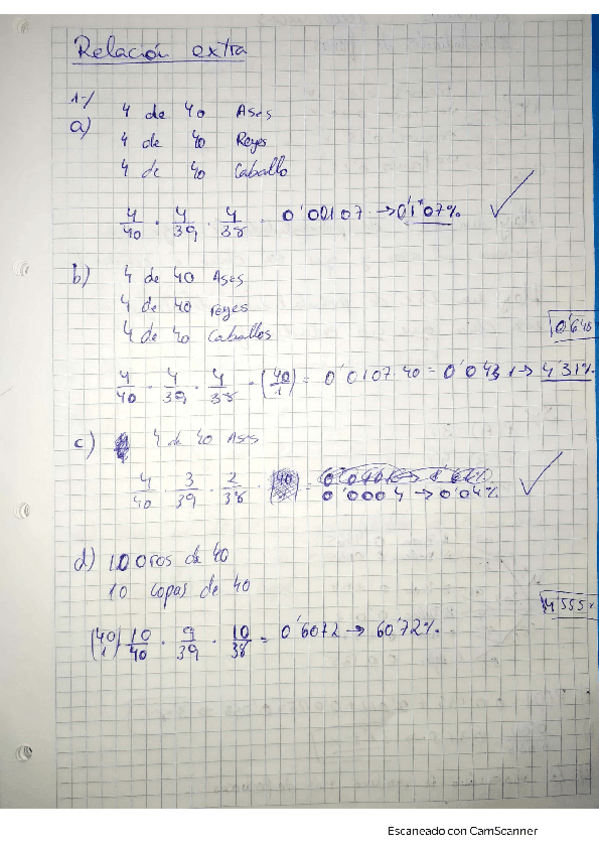 Relación extra
1-/
a) 4 de 40 Ases
4 de 40 Reyes
4 de 40 Caballo
4/40 · 4/39 · 4/38 = 0'00107 → 0'107%
b) 4 de 40 Ases
4 de 40 reyes
4 de 40 Caballos
10'648
4/40 · 4/39 · 4/38 · (40/1) = 0'0107·40 = 0'0431 → 4'31%
c) 4 de 40 Ases
4/40 · 3/39 · 2/38 =
0'0004 → 0'04%
d) 10 oros de 40
10 copas de 40
4'555%
(40/1) 10/40 · 9/39 · 10/38 = 0'6072 → 60'72%
Escaneado con CamScanner